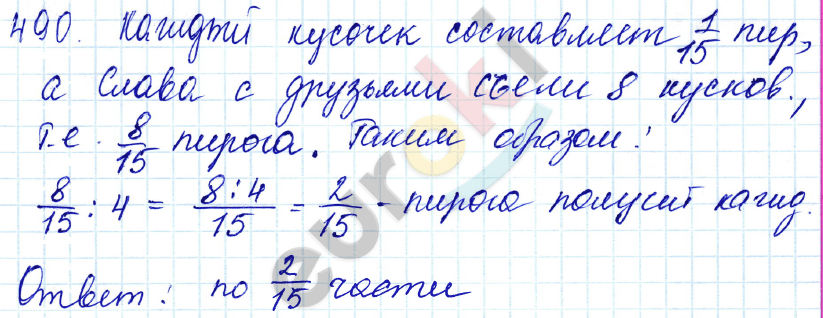 490. Каждый кусочек составляет 1/15 пир,
а Слава с друзьями съели 8 кусков.,
т.е. 8/15 пирога. Таким образом:
8/15 : 4 = 8:4/15 = 2/15 - пирога получит кажд.
Ответ: по 2/15 части
euroki